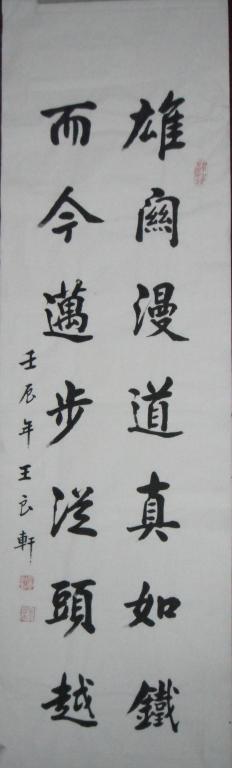 雄關漫道真如鐵
而今邁步從頭越
壬辰年王良軒